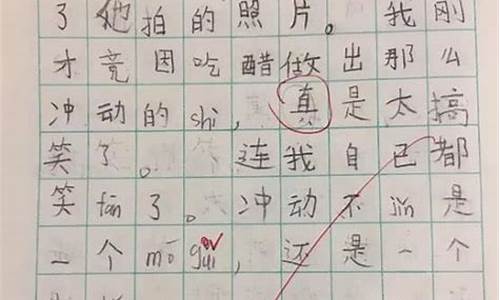 了他拍的照片。我刚
才竟因吃醋做出那么
冲动的shi,真是太搞
笑了。连我自己都
笑fān了。冲动不jǐn是
一个mó guǐ,还是一个